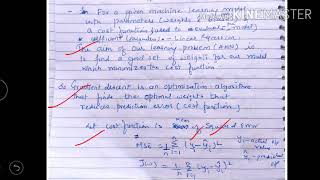 - For a given machine learning model
with parameters (weights
a cost function
coefficient Linear
The aim of our learning problem (ANN) is
to find a good set of weights for our
model which minimizes the cost function.
So Gradient descent is an optimisation algorithm
that finds the optimal weights that
reduces prediction error (cost function)
Let cost function is mean of Squared Error
MSE = 1/n Σ (y - ŷ)²
J(w) = 1/n Σ (yi - ŷi)²
KINEMASTER